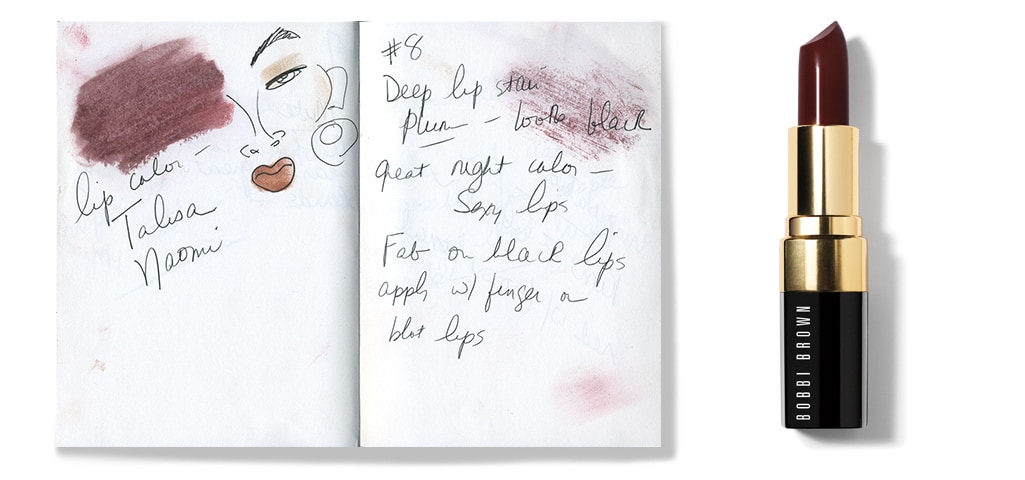 lip color –
Talisa
Naomi
#8
Deep lip stain
plum – looks black
great night color –
Sexy lips
Fab on black lips
apply w/ finger or
blot lips
BOBBI BROWN